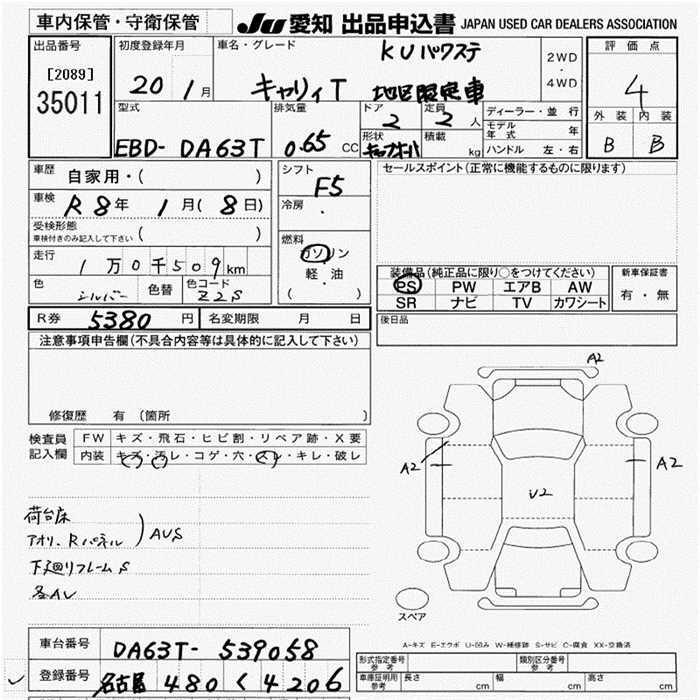 車内保管・守衛保管
JU 愛知 出品申込書 JAPAN USED CAR DEALERS ASSOCIATION
出品番号
[2089]
35011
初度登録年月
20 1月
車名・グレード
KUパワステ
キャリィT 地区限定車
2WD
・
4WD
評価点
4
外装 内装
B B
型式
EBD- DA63T
排気量
0.65 CC
ドア
2
定員
2人
形状
積載
kg
ディーラー・並行
モデル年式 年
ハンドル 左・右
車歴
自家用・( )
車検
R8年 1月(8日)
受検形態
車検付きのみ記入して下さい ( )
走行
1万0千509km
色
シルバー
色替
色コード
Z2S
シフト
F5
冷房
・
燃料
ガソリン
軽・油
( )
セールスポイント(正常に機能するものに限ります)
装備品(純正品に限り○をつけてください)
PS PW エアB AW
SR ナビ TV カワシート
新車保証書
有・無
後日品
R券 5380円
名変期限 月 日
注意事項申告欄(不具合内容等は具体的に記入して下さい)
修復歴 有 (箇所 )
検査員
記入欄
FW キズ・飛石・ヒビ割・リペア跡・X要
内装 キズ・汚レ・コゲ・穴・スレ・キレ・破レ
荷台床
アオリ、Rパネル ) AUS
下廻リフレームS
各AU
A2
A2
A2
U2
スペア
A-キズ E-エクボ U-凹み W-補修跡 S-サビ C-腐食 XX-交換済
車台番号
DA63T- 539058
登録番号
名古屋 480 く 4206
形式指定番号
参考
類別区分番号
参考
車庫証明用
参考
長さ cm 幅 cm 高さ cm